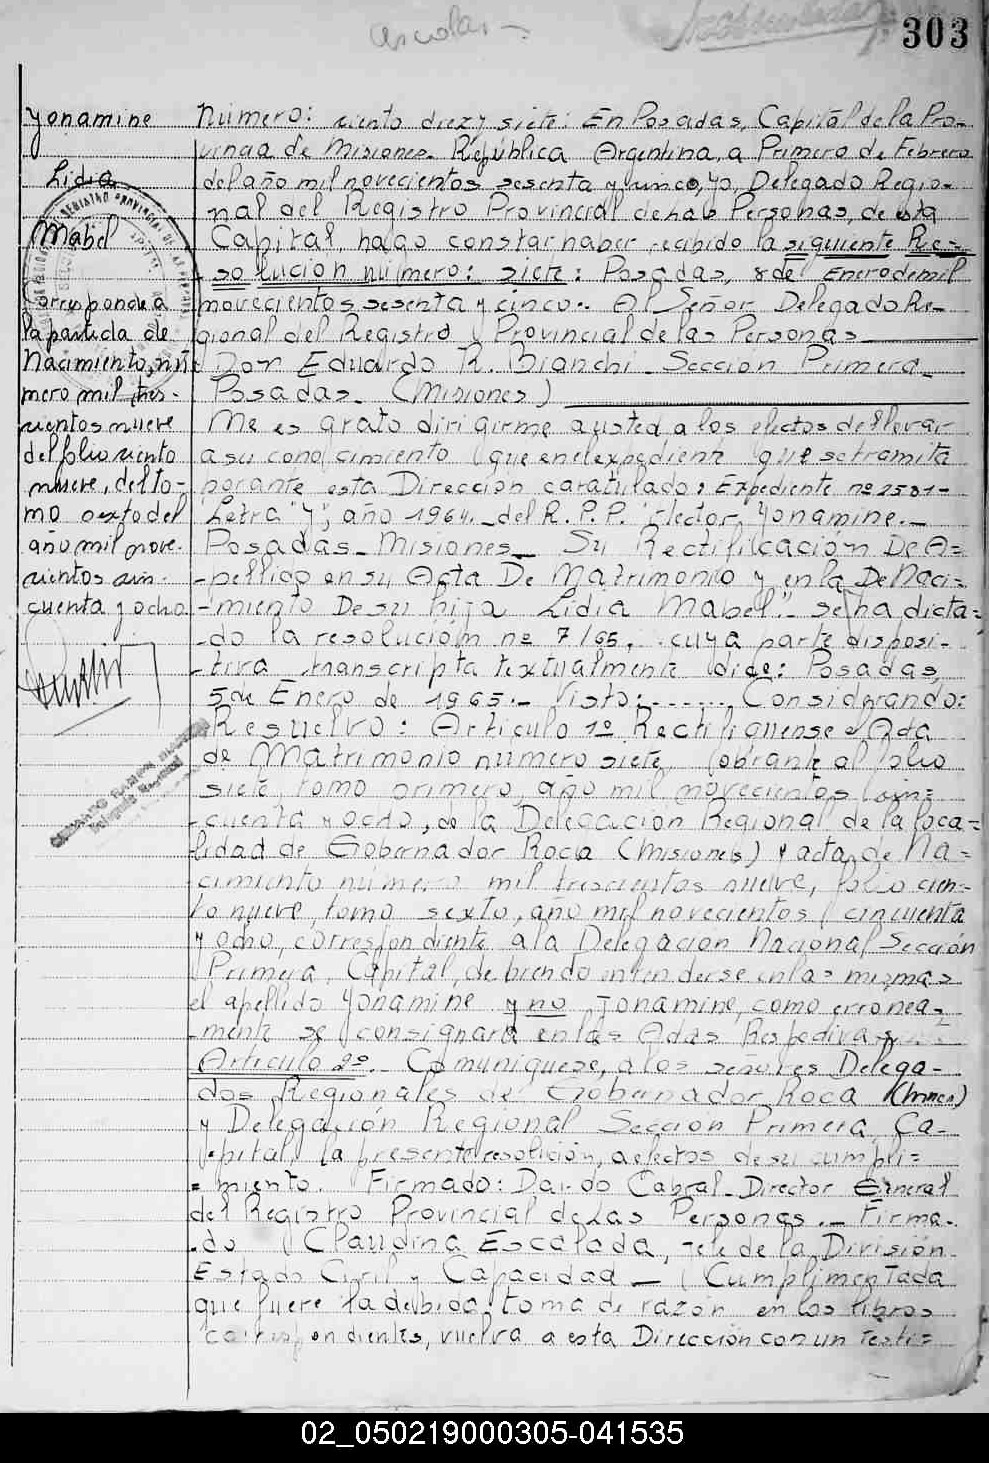 escolar.-
303
Yonamine
Lidia
Mabel
Corresponde a
la partida de
Nacimiento, nú-
mero mil tres-
cientos nueve
del folio ciento
nueve, del to-
mo sexto del
año mil nove-
cientos cin-
cuenta y ocho
Número: ciento diez y siete: En Posadas, Capital de la Pro-
vincia de Misiones. República Argentina, a Primero de Febrero
del año mil novecientos sesenta y cinco, yo, Delegado Regio-
nal del Registro Provincial de las Personas, de esta
Capital, hago constar haber recibido la siguiente Re=
solución número: siete: Posadas, 8 de Enero de mil
novecientos sesenta y cinco.. Al Señor Delegado Re-
gional del Registro Provincial de las Personas
Don Eduardo R. Bianchi - Sección Primera-
Posadas - (Misiones)
Me es grato dirigirme a usted a los efectos de llevar
a su conocimiento que en el expediente que se tramita
por ante esta Dirección caratulado: Expediente nº 2581-
Letra "Y", año 1964.- del R. P. P. "Hector Yonamine.-
Posadas - Misiones - Su Rectificación De A=
-pellido en su Acta De Matrimonio y en la De Naci=
-miento De su hija Lidia Mabel".- se ha dicta=
-do la resolución nº 7/65, cuya parte disposi-
-tiva transcripta textualmente dice: Posadas,
5 de Enero de 1965.- Visto: ...... Considerando:
Resuelvo: Articulo 1º Rectifiquense el Acta
de Matrimonio número siete obrante al folio
siete, tomo primero, año mil novecientos cin=
cuenta y ocho, de la Delegacion Regional de la loca=
lidad de Gobernador Roca (Misiones) y acta de Na=
cimiento número mil trescientos nueve, folio cien-
to nueve tomo sexto, año mil novecientos cincuenta
y ocho, correspondiente a la Delegacion Nacional Sección
Primera, Capital, debiendo entenderse en las mismas
el apellido Yonamine y no Jonamine, como erronea=
mente se consignara en las Actas Respectivas.
Articulo 2º.- Comuniquese, a los señores Delega-
dos Regionales de Gobernador Roca (Mnes)
y Delegación Regional Sección Primera, Ca-
pital la presente resolución, a efectos de su cumpli=
= miento. Firmado: Dardo Cabral - Director General
del Registro Provincial de las Personas.- Firma-
-do Claudina Escalada, Jefe de la División
Estado Civil y Capacidad — Cumplimentada
que fuere la debida toma de razón en los libros
correspondientes, vuelva a esta Dirección con un Testi=
02_050219000305-041535